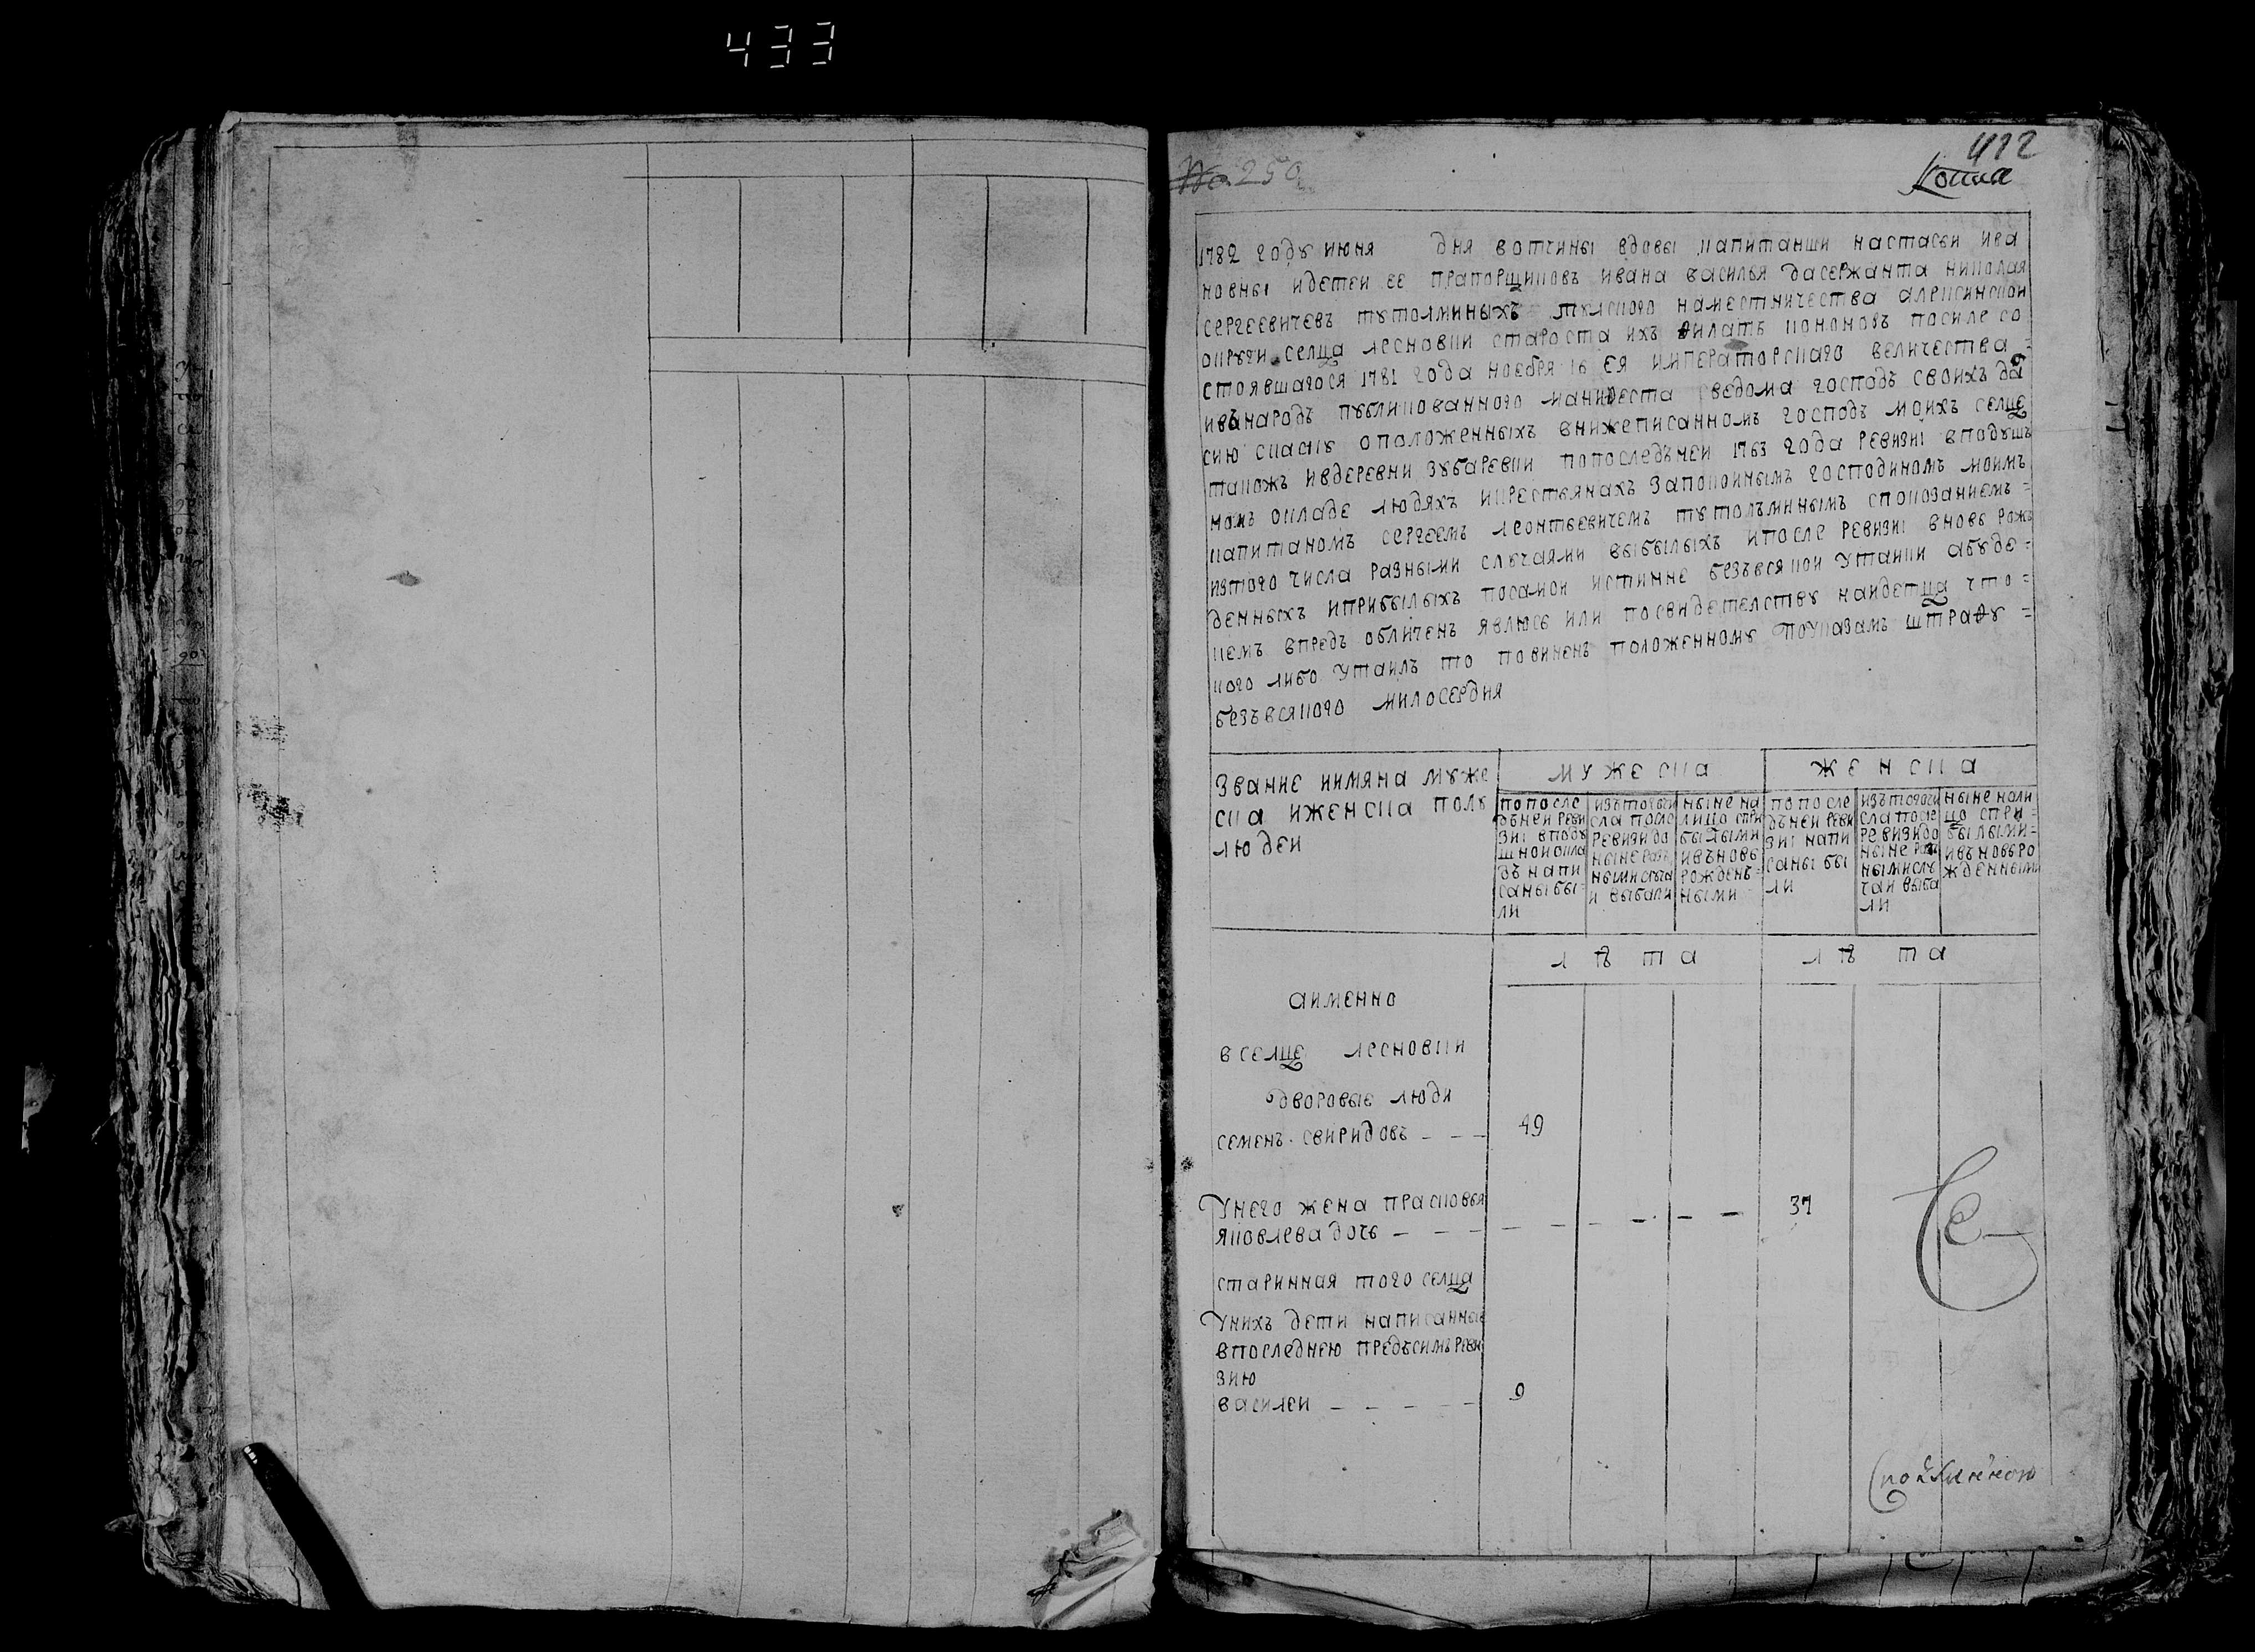 433
422
Копиа
№ 250
1782 году июня дня вотчины вдовы капитанши настасьи ива
новны идетеи ее прапорщиковъ ивана василья дасержанта николая
сергеевичевъ тутолминыхъ тулского наместничества алексинскои
округи селца лесновки староста ихъ филатъ кононовъ посиле со
стоявшагося 1781 года ноебря 16 ея императорскаго величества =
ивънародъ публикованного манифеста сведома господъ своихъ далъ
сию скаску оположенныхъ внижеписанномъ господъ моихъ селце
такожъ ивдеревни зубаревки попоследънеи 1763 года ревизиі вподуш
номъ окладе людяхъ икрестьянахъ запокоинымъ господиномъ моимъ
капитаномъ сергеемъ леонтьевичемъ тутолъминымъ споказаниемъ =
изтого числа разными случаями выбылыхъ ипосле ревизиі вновь рож
денныхъ иприбылыхъ посамои истинне безъвсякои утаики абуде =
кемъ впредь обличенъ явлюсь или посвидетелству наидетца что =
кого либо утаилъ то повиненъ положенному поуказамъ штрафу =
безъвсякого милосердия
Звание иимяна муже
ска иженска полу
людеи
мужеска
женска
попосле
дънеи реви
зиі вподу
шнои окла
дъ напи
саны бы
ли
изътогочи
сла после
ревизи до
ныне раз
ными случа
и выбыли
ныне на
лицо спри
былыми
ивъновь
рожденъ=
ными
попосле
дънеи реви
зиі напи
саны бы
ли
изътогочи
сла после
ревизи до
ныне раз
ными слу
чаи выбы
ли
ныне нали
цо спри=
былыми=
ивъновьро
жденными
лѣта
лѣта
аименно
вселце лесновки
дворовые люди
семенъ свиридовъ – – – 49
Унего жена прасковья
яковлева дочь – – – – – – – – – 37
старинная того селца
Унихъ дети написанные
впоследнею предъсимъ реви
зию
василеи – – – – – 9